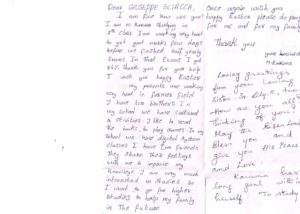 Dear GIUSEPPE SCIACCA,
I am fine how are you?
I am M. Karuna Studying in
8th class I am working very hard
to get good marks few days
before we finished Half yearly
Exams in that Exams I got
85%. Thank you for your help
I wish you happy Easter
my parents are working
very hard in farmers field
I have two brothers in
my school we have cultural
activities I like to read
the books, to play Games In my
School we have digital System
classes I have two friends
they share their feelings
with me to improve my
Knowledge I am very much
interested in studies so
I want to go for higher
studies to help my family
in the future
Once again wish you
happy Easter please do pray
for me and for my family
Thank you
your lovingly
M. Karuna
Loving greetings
from your loving
How are you all?
Thinking of you!
May the Risen Lord
Bless you and
give you His Peace
and Love
Karuna has
long goal within
herself. To study